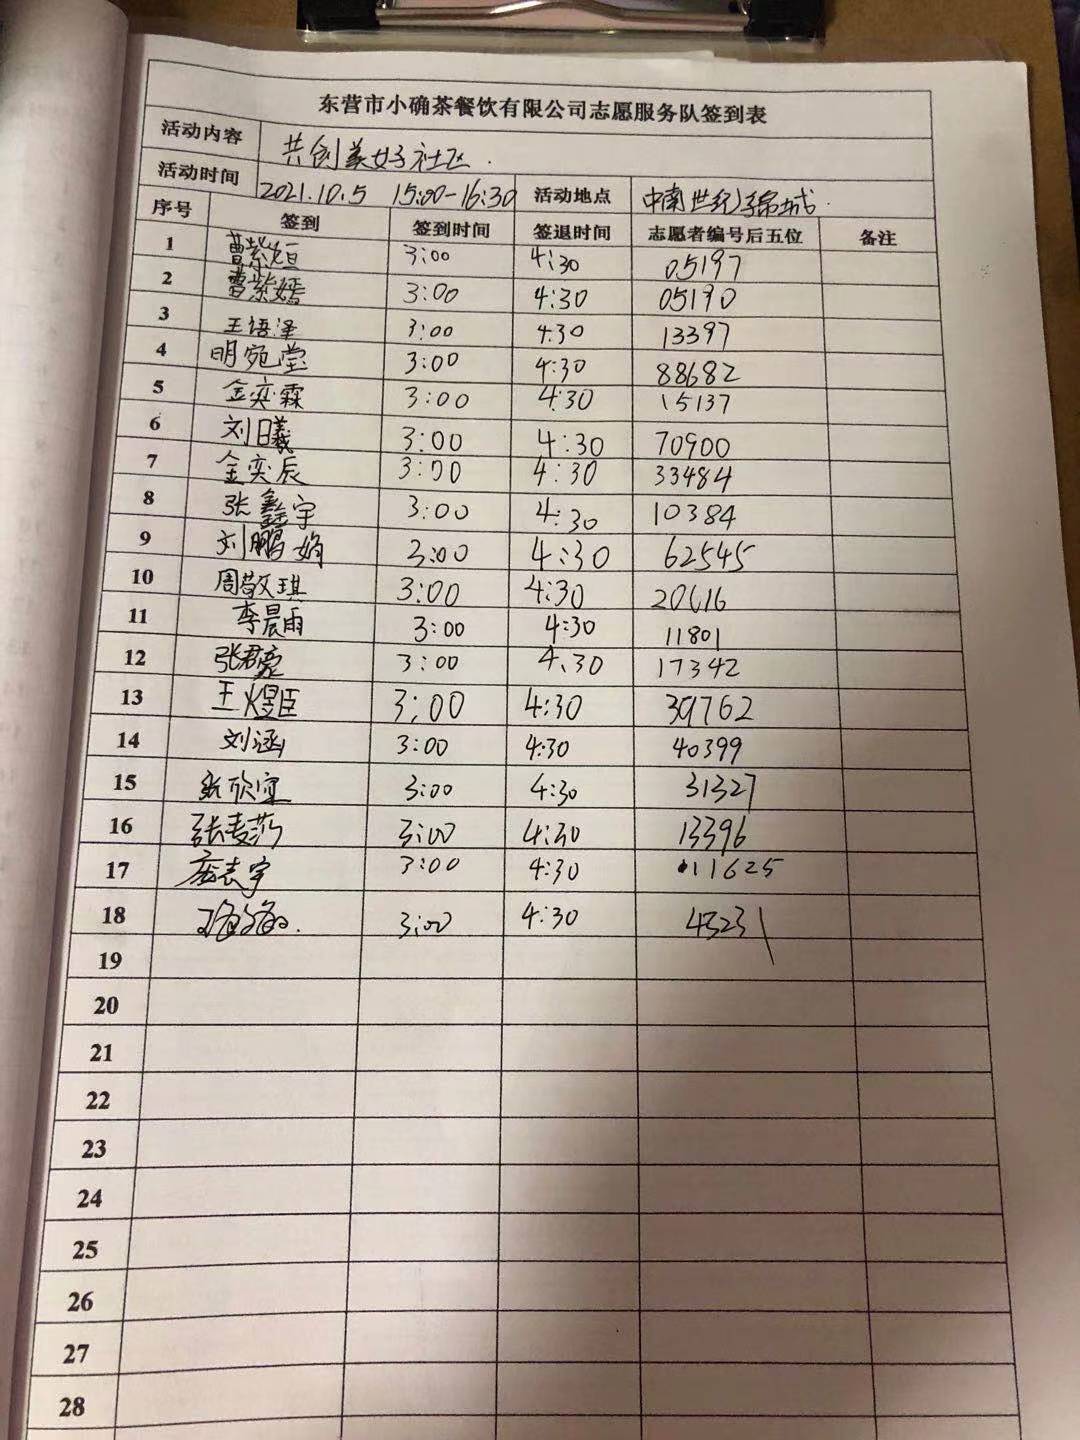 东营市小确茶餐饮有限公司志愿服务队签到表
活动内容 共创美好社区.
活动时间 2021.10.5 15:00-16:30 活动地点 中南世纪锦城.
序号 签到 签到时间 签退时间 志愿者编号后五位 备注
1 曹紫烜 3:00 4:30 05197
2 曹紫嫣 3:00 4:30 05190
3 王语泽 3:00 4:30 13397
4 明宛莹 3:00 4:30 88682
5 金奕霖 3:00 4:30 15137
6 刘日曦 3:00 4:30 70900
7 金奕辰 3:00 4:30 33484
8 张鑫宇 3:00 4:30 10384
9 刘鹏娟 3:00 4:30 62545
10 周敬琪 3:00 4:30 20616
11 李晨雨 3:00 4:30 11801
12 张君豪 3:00 4.30 17342
13 王煜臣 3:00 4:30 39762
14 刘涵 3:00 4:30 40399
15 张欣 3:00 4:30 31327
16 张麦莎 3:00 4:30 13396
17 志宇 3:00 4:30 11625
18 3:00 4:30 45231
19
20
21
22
23
24
25
26
27
28